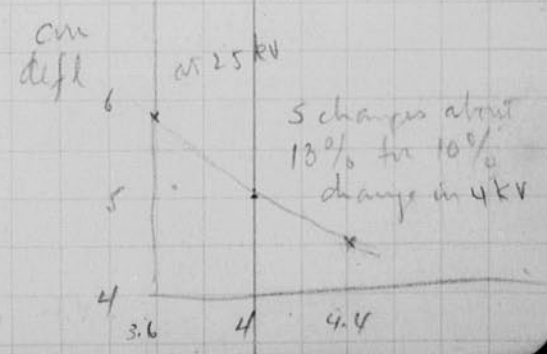 cm
defl
at 25 kV
6
S changes about
13% for 10%
change in 4 kV
5
4
3.6 4 4.4